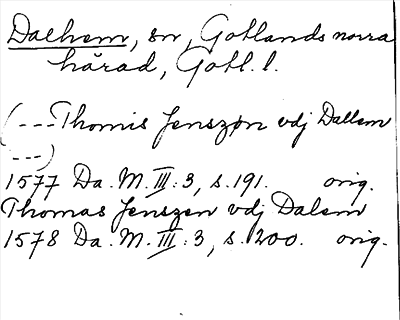 Dalhem, sn, Gotlands norra
härad, Gotl. l.
(---Thomis Jenszøn vdj Dallem
---)
1577 Da. M. III:3, s. 191. orig.
Thomas Jenszen vdj Dalem
1578 Da. M. III:3, s. 200. orig.